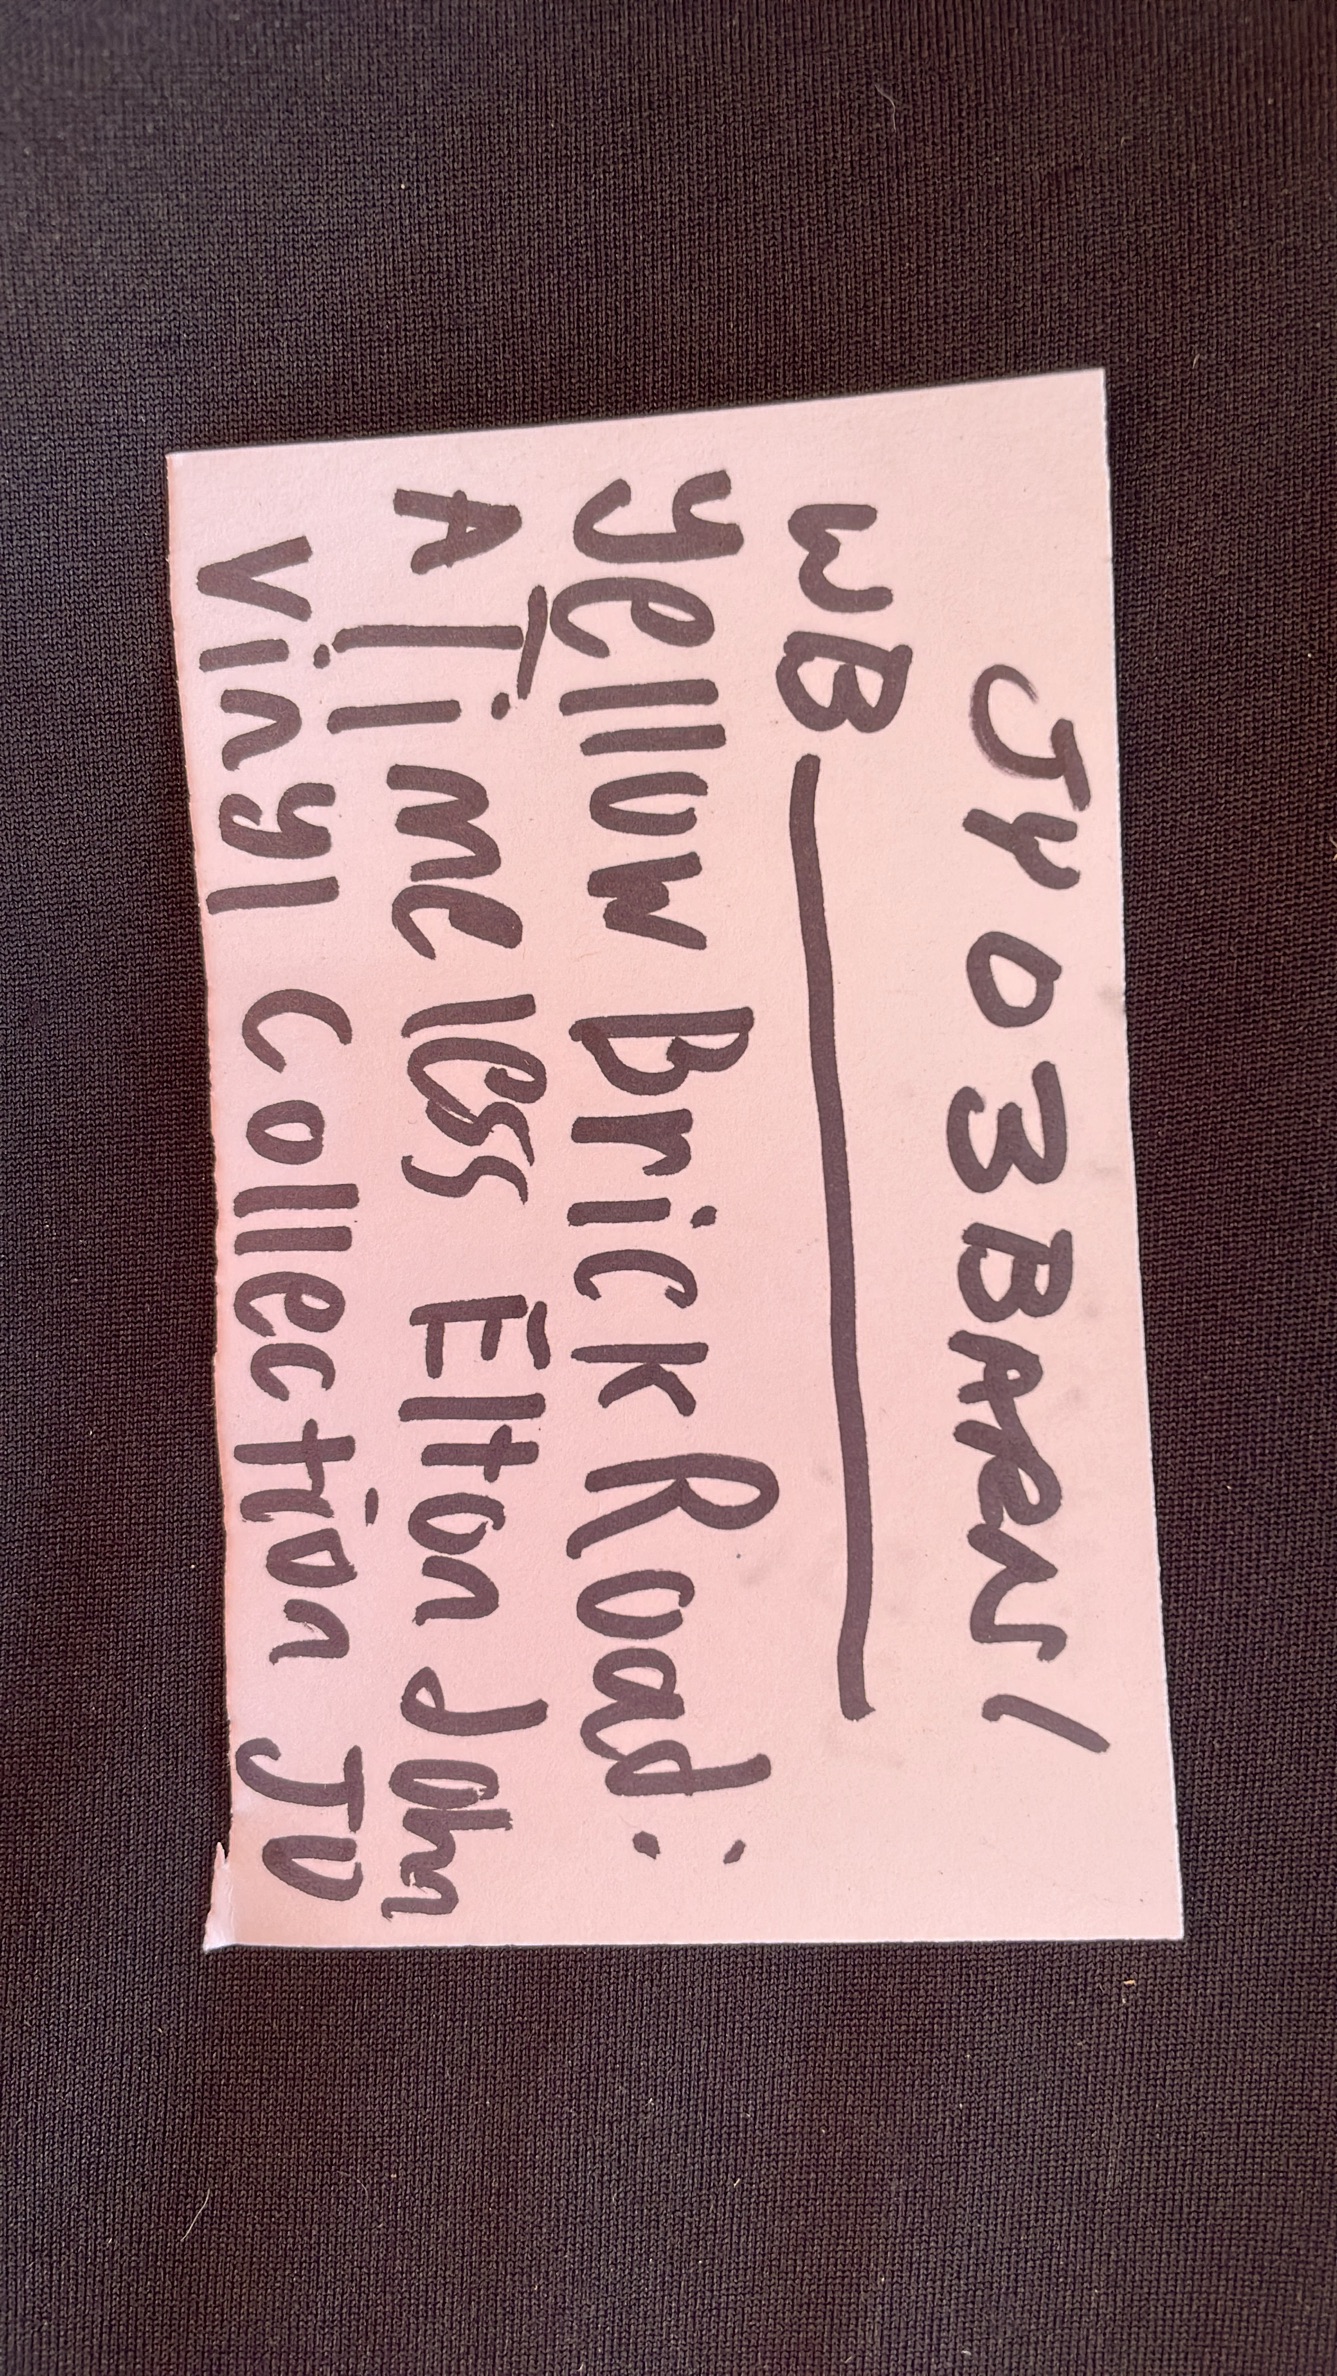 JY03BARN1
WB
Yellow Brick Road:
A Timeless Elton John
Vinyl Collection JU